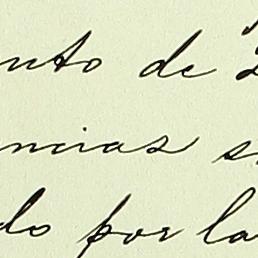 nto de
ncias
do por la